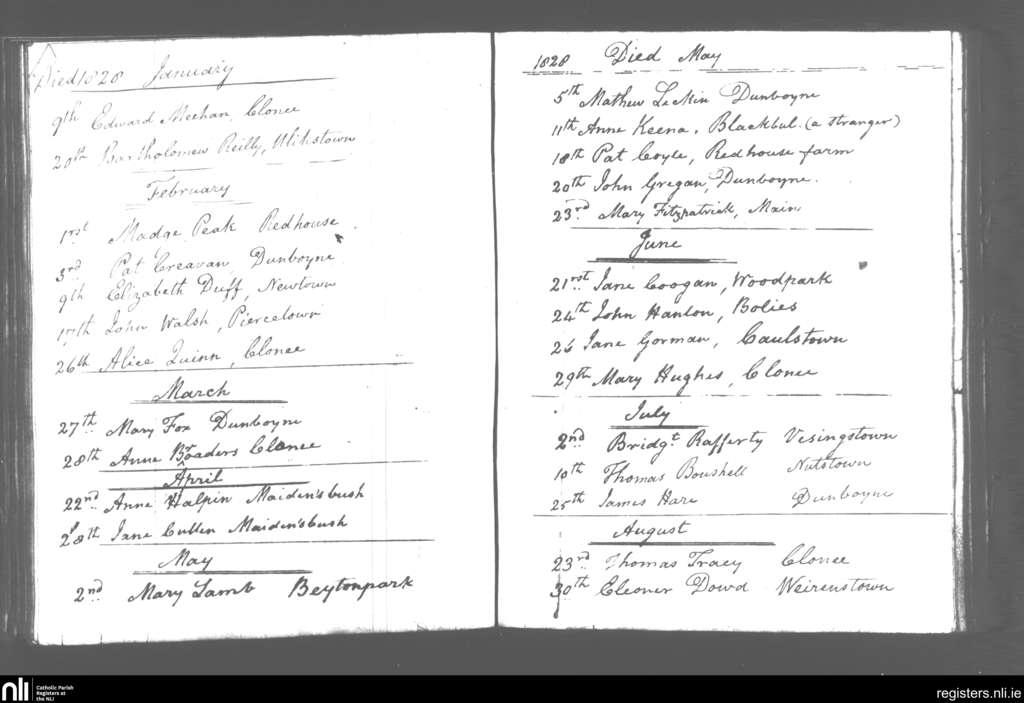 Died 1828 January
9th Edward Meehan, Clonee
20th Bartholomew Reilly, Whikstown
February
1rst Madge Peak Redhouse
3rd Pat Creavan, Dunboyne
9th Elizabeth Duff, Newtown
17th John Walsh, Piercetown
26th Alice Quinn, Clonee
March
27th Mary Fox Dunboyne
28th Anne Broaders Clonee
April
22nd Anne Halpin Maiden'sbush
28th Jane Cullen Maiden'sbush
May
2nd Mary Lamb Beytonpark
1828 Died May
5th Mathew Dunboyne
11th Anne Keena, Blackbul. (a stranger)
18th Pat Coyle, Redhouse farm
20th John Gregan, Dunboyne.
23rd Mary Fitzpatrick, Main
June
21rst Jane Coogan, Woodpark
24th John Hanlon, Bolies
26 Jane Gorman, Caulstown
29th Mary Hughes, Clonee
July
2nd Bridgt Rafferty Vesingstown
10th Thomas Boushell Nutstown
25th James Hare Dunboyne
August
23rd Thomas Tracy Clonee
30th Eleoner Dowd Weirenstown
nli Catholic Parish
Registers at
the NLI
registers.nli.ie